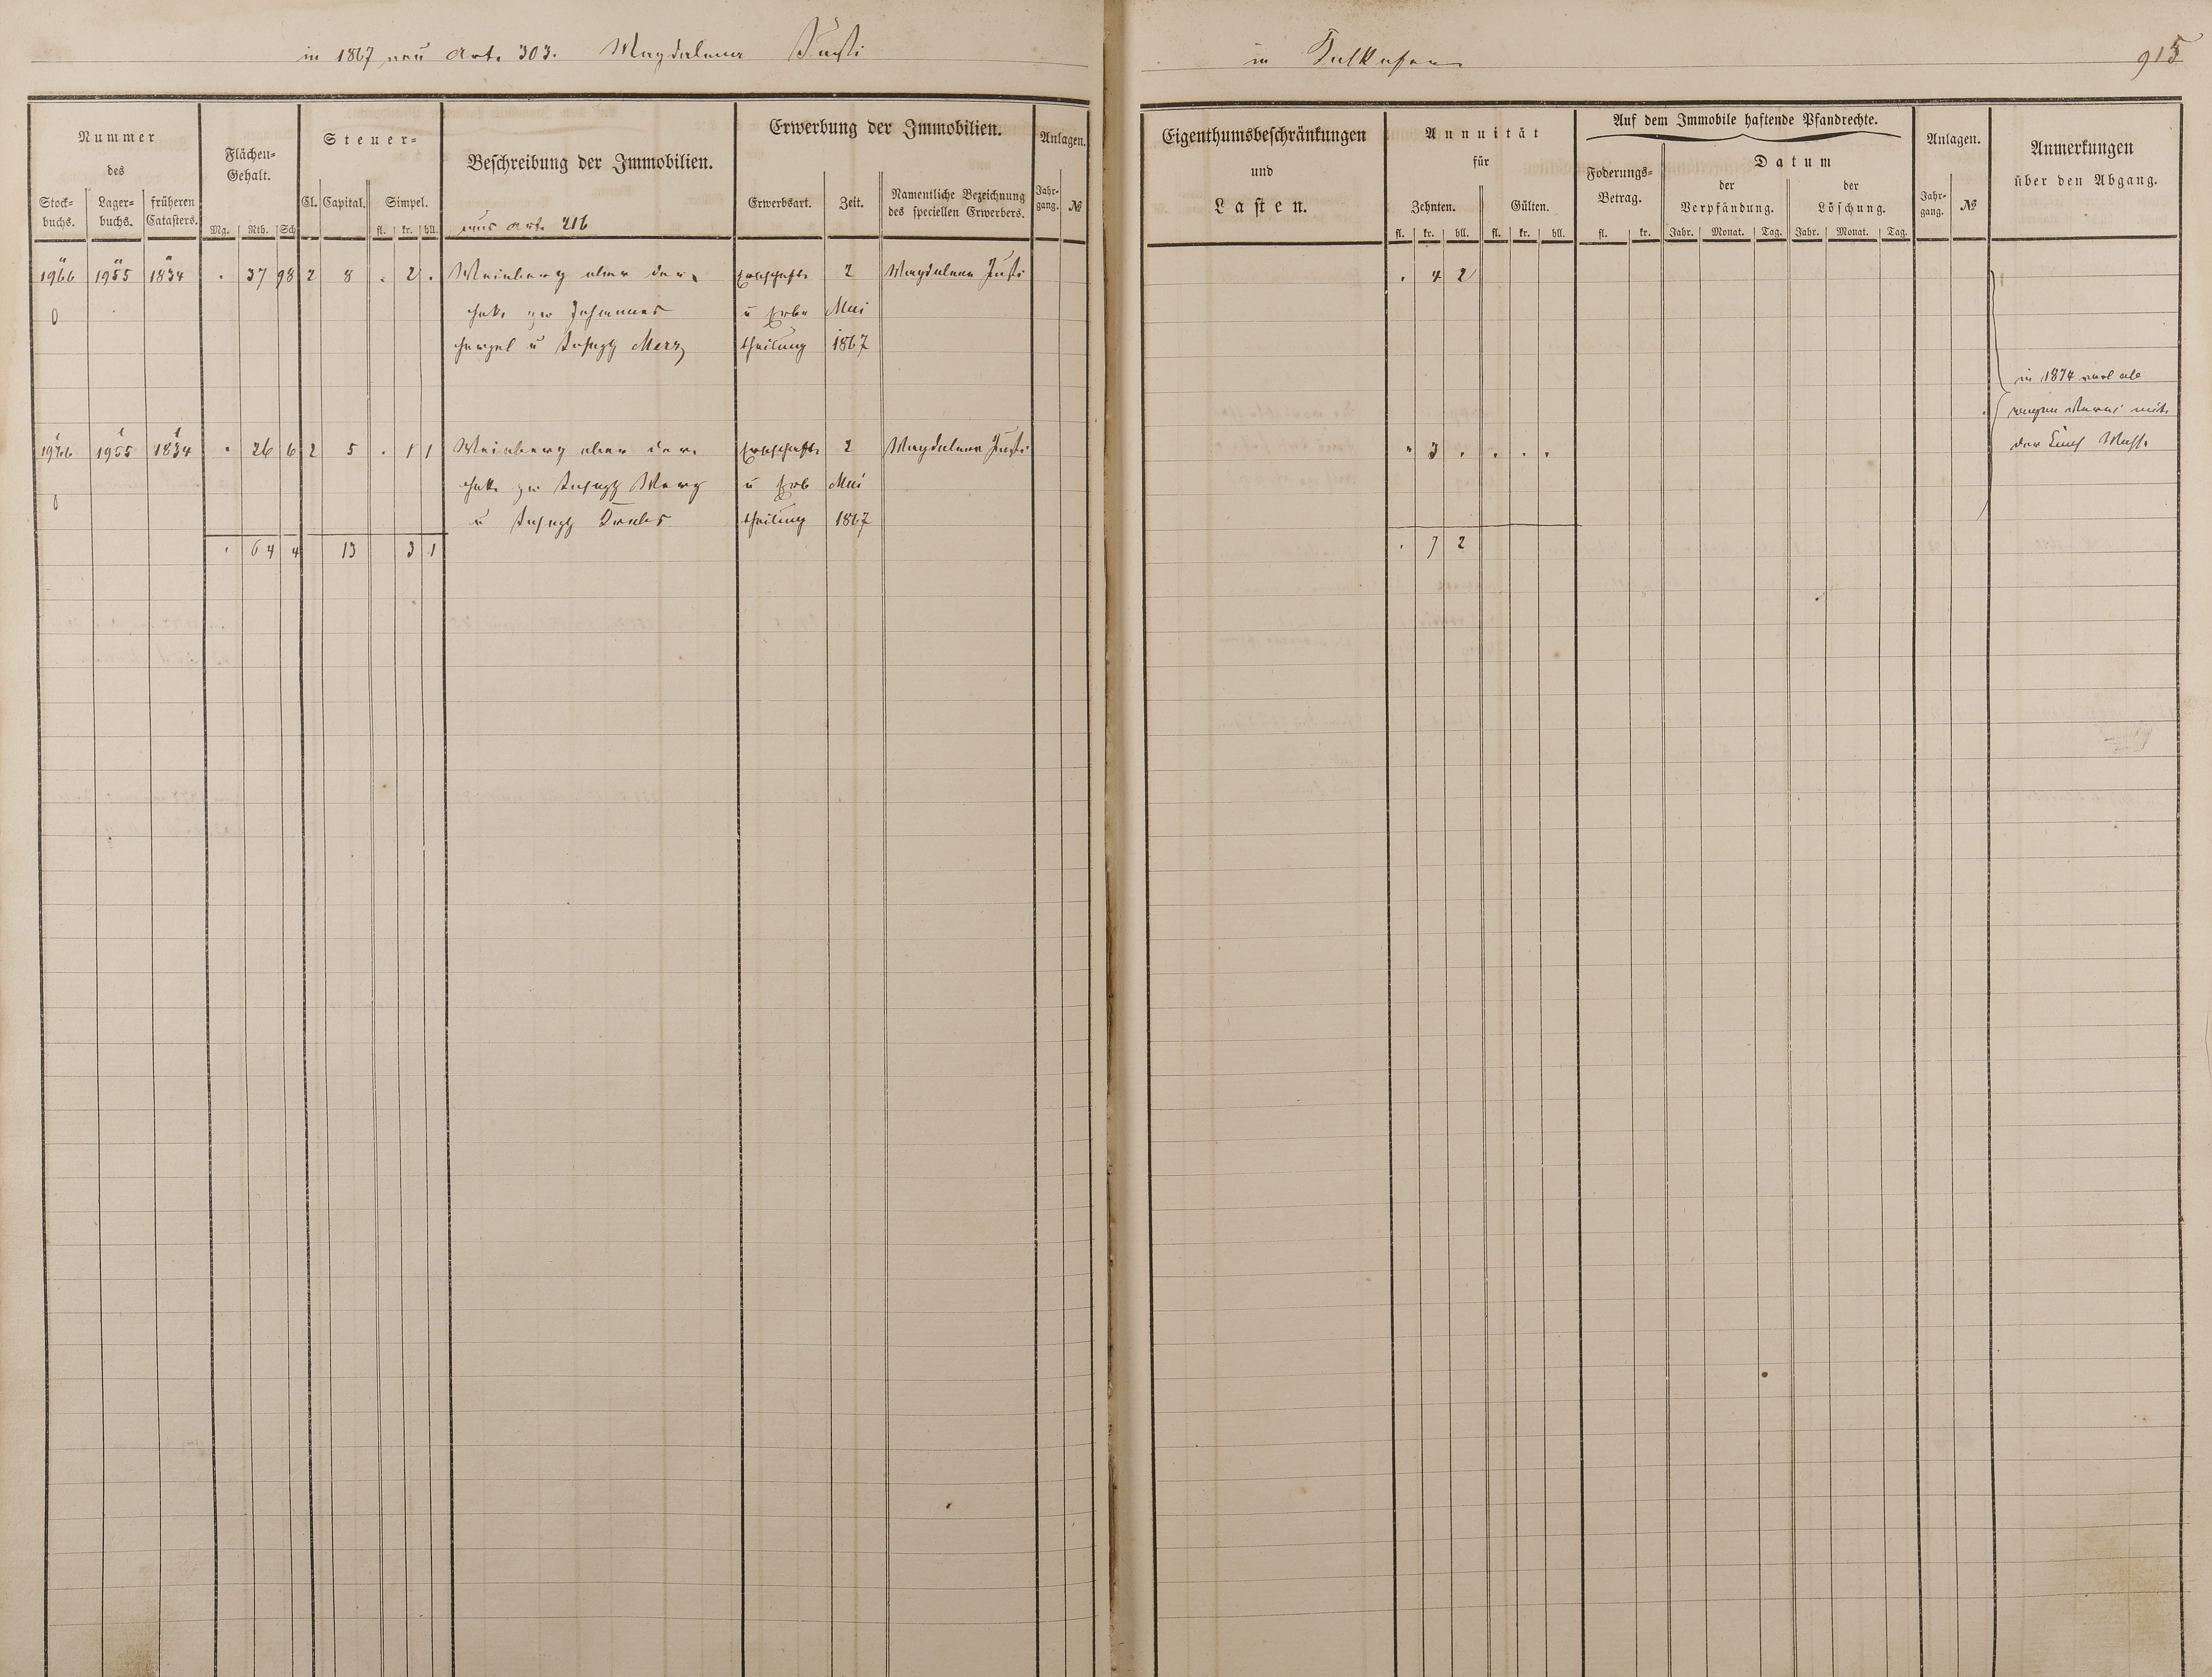 in 1867 neu Art. 303. Magdalena Justi
in
915
Nummer
des
Stock-
buchs.
Lager-
buchs.
früheren
Catasters.
Flächen-
Gehalt.
Mg. Rth. Sch
Steuer-
Cl. Capital. Simpel.
fl. kr. hll.
Beschreibung der Immobilien.
aus Art. 216
Erwerbung der Immobilien.
Erwerbsart. Zeit.
Namentliche Bezeichnung
des speciellen Erwerbers.
Anlagen.
Jahr-
gang. №
Eigenthumsbeschränkungen
und
Lasten.
Annuität
für
Zehnten. Gülten.
fl. kr. hll. fl. kr. hll.
Auf dem Immobile haftende Pfandrechte.
Foderungs-
Betrag.
fl. kr.
Datum
der
Verpfändung.
der
Löschung.
Jahr. Monat. Tag. Jahr. Monat. Tag.
Anlagen.
Jahr-
gang. №
Anmerkungen
über den Abgang.
1966 1955 1834 . 37 98 2 8 . 2 . Weinberg ober der Erbschaft 2 Magdalena Justi . 4 2
zw Johannes u Erb Mai
u Joseph Merz theilung 1867
in 1874
mit
der
1966 1955 1834 . 26 6 2 5 . 1 1 Weinberg ober der Erbschaft 2 Magdalena Justi . 3 . . . .
zw Joseph u Erb Mai
u Joseph theilung 1867
. 64 4 13 3 1 . 7 2